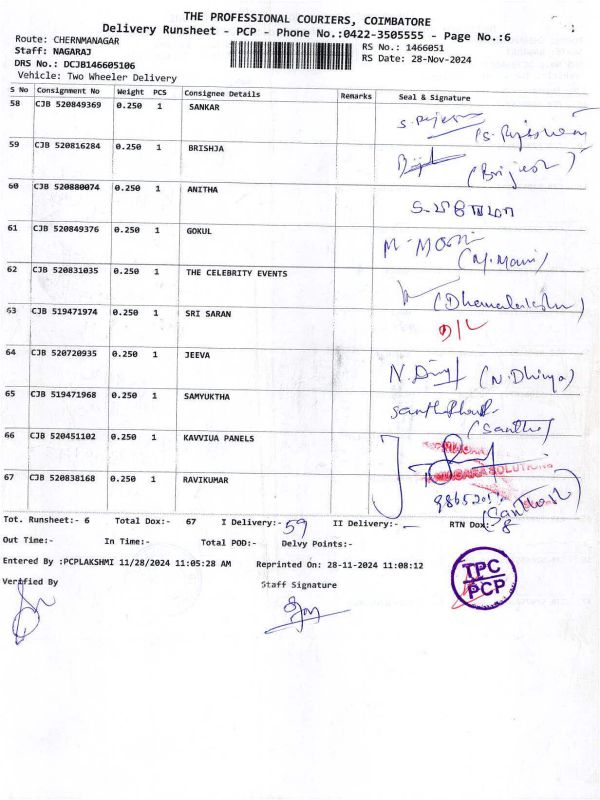 THE PROFESSIONAL COURIERS, COIMBATORE
Delivery Runsheet - PCP - Phone No.:0422-3505555 - Page No.:6
Route: CHERNMANAGAR
RS No.: 1466051
Staff: NAGARAJ
RS Date: 28-Nov-2024
DRS No.: DCJB146605106
Vehicle: Two Wheeler Delivery
S No Consignment No Weight PCS Consignee Details Remarks Seal & Signature
58 CJB 520849369 0.250 1 SANKAR
59 CJB 520816284 0.250 1 BRISHJA
(Brijesh)
60 CJB 520880074 0.250 1 ANITHA
61 CJB 520849376 0.250 1 GOKUL M. Mani
(M.Mani)
62 CJB 520831035 0.250 1 THE CELEBRITY EVENTS
63 CJB 519471974 0.250 1 SRI SARAN D/L
64 CJB 520720935 0.250 1 JEEVA (N.Dhivya)
65 CJB 519471968 0.250 1 SAMYUKTHA
66 CJB 520451102 0.250 1 KAVVIUA PANELS
67 CJB 520838168 0.250 1 RAVIKUMAR
(Santhosh)
Tot. Runsheet:- 6 Total Dox:- 67 I Delivery:- 59 II Delivery:- - RTN Dox:- 8
Out Time:- In Time:- Total POD:- Delvy Points:-
Entered By :PCPLAKSHMI 11/28/2024 11:05:28 AM Reprinted On: 28-11-2024 11:08:12
Verified By Staff Signature
TPC
PCP